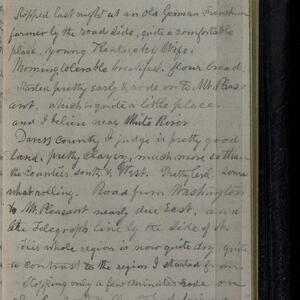 Stopped last night at an old German Frenchman
farmer by the road side, quite a comfortable
place, young Kentucky Wife.
Morning tolerable breakfast, flour bread
Started pretty early & rode on to Mt. Pleas
ant, which is quite a little place.
and I believe near White River
Daress County I judge is pretty good
land, pretty clayey, much more so than
the Counties South & West. Pretty level, some
what rolling. Road from Washington
to Mt. Pleasant nearly due East, and
the Telegraph line by the side of it.
This whole region is now quite dry quite
a contrast to the region I started from
Stopping only a few minutes rode on